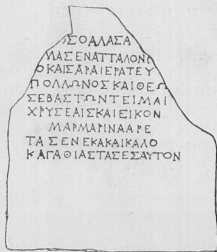 ΣΟΑΛΑΣΑ
ΜΑΣΕΝΑΤΤΑΛΟΝ
ΟΚΑΙΣΑΡΑΙΕΡΑΤΕΥ
ΠΟΛΛΩΝΟΣΚΑΙΘΕΩ
ΣΕΒΑΣΤΩΝΤΕΙΜΑΙ
ΧΡΥΣΕΑΙΣΚΑΙΕΙΚΟΝ
ΜΑΡΜΑΡΙΝΑΑΡΕ
ΤΑΣΕΝΕΚΑΚΑΙΚΑΛΟ
ΚΑΓΑΘΙΑΣΤΑΣΕΣΑΥΤΟΝ